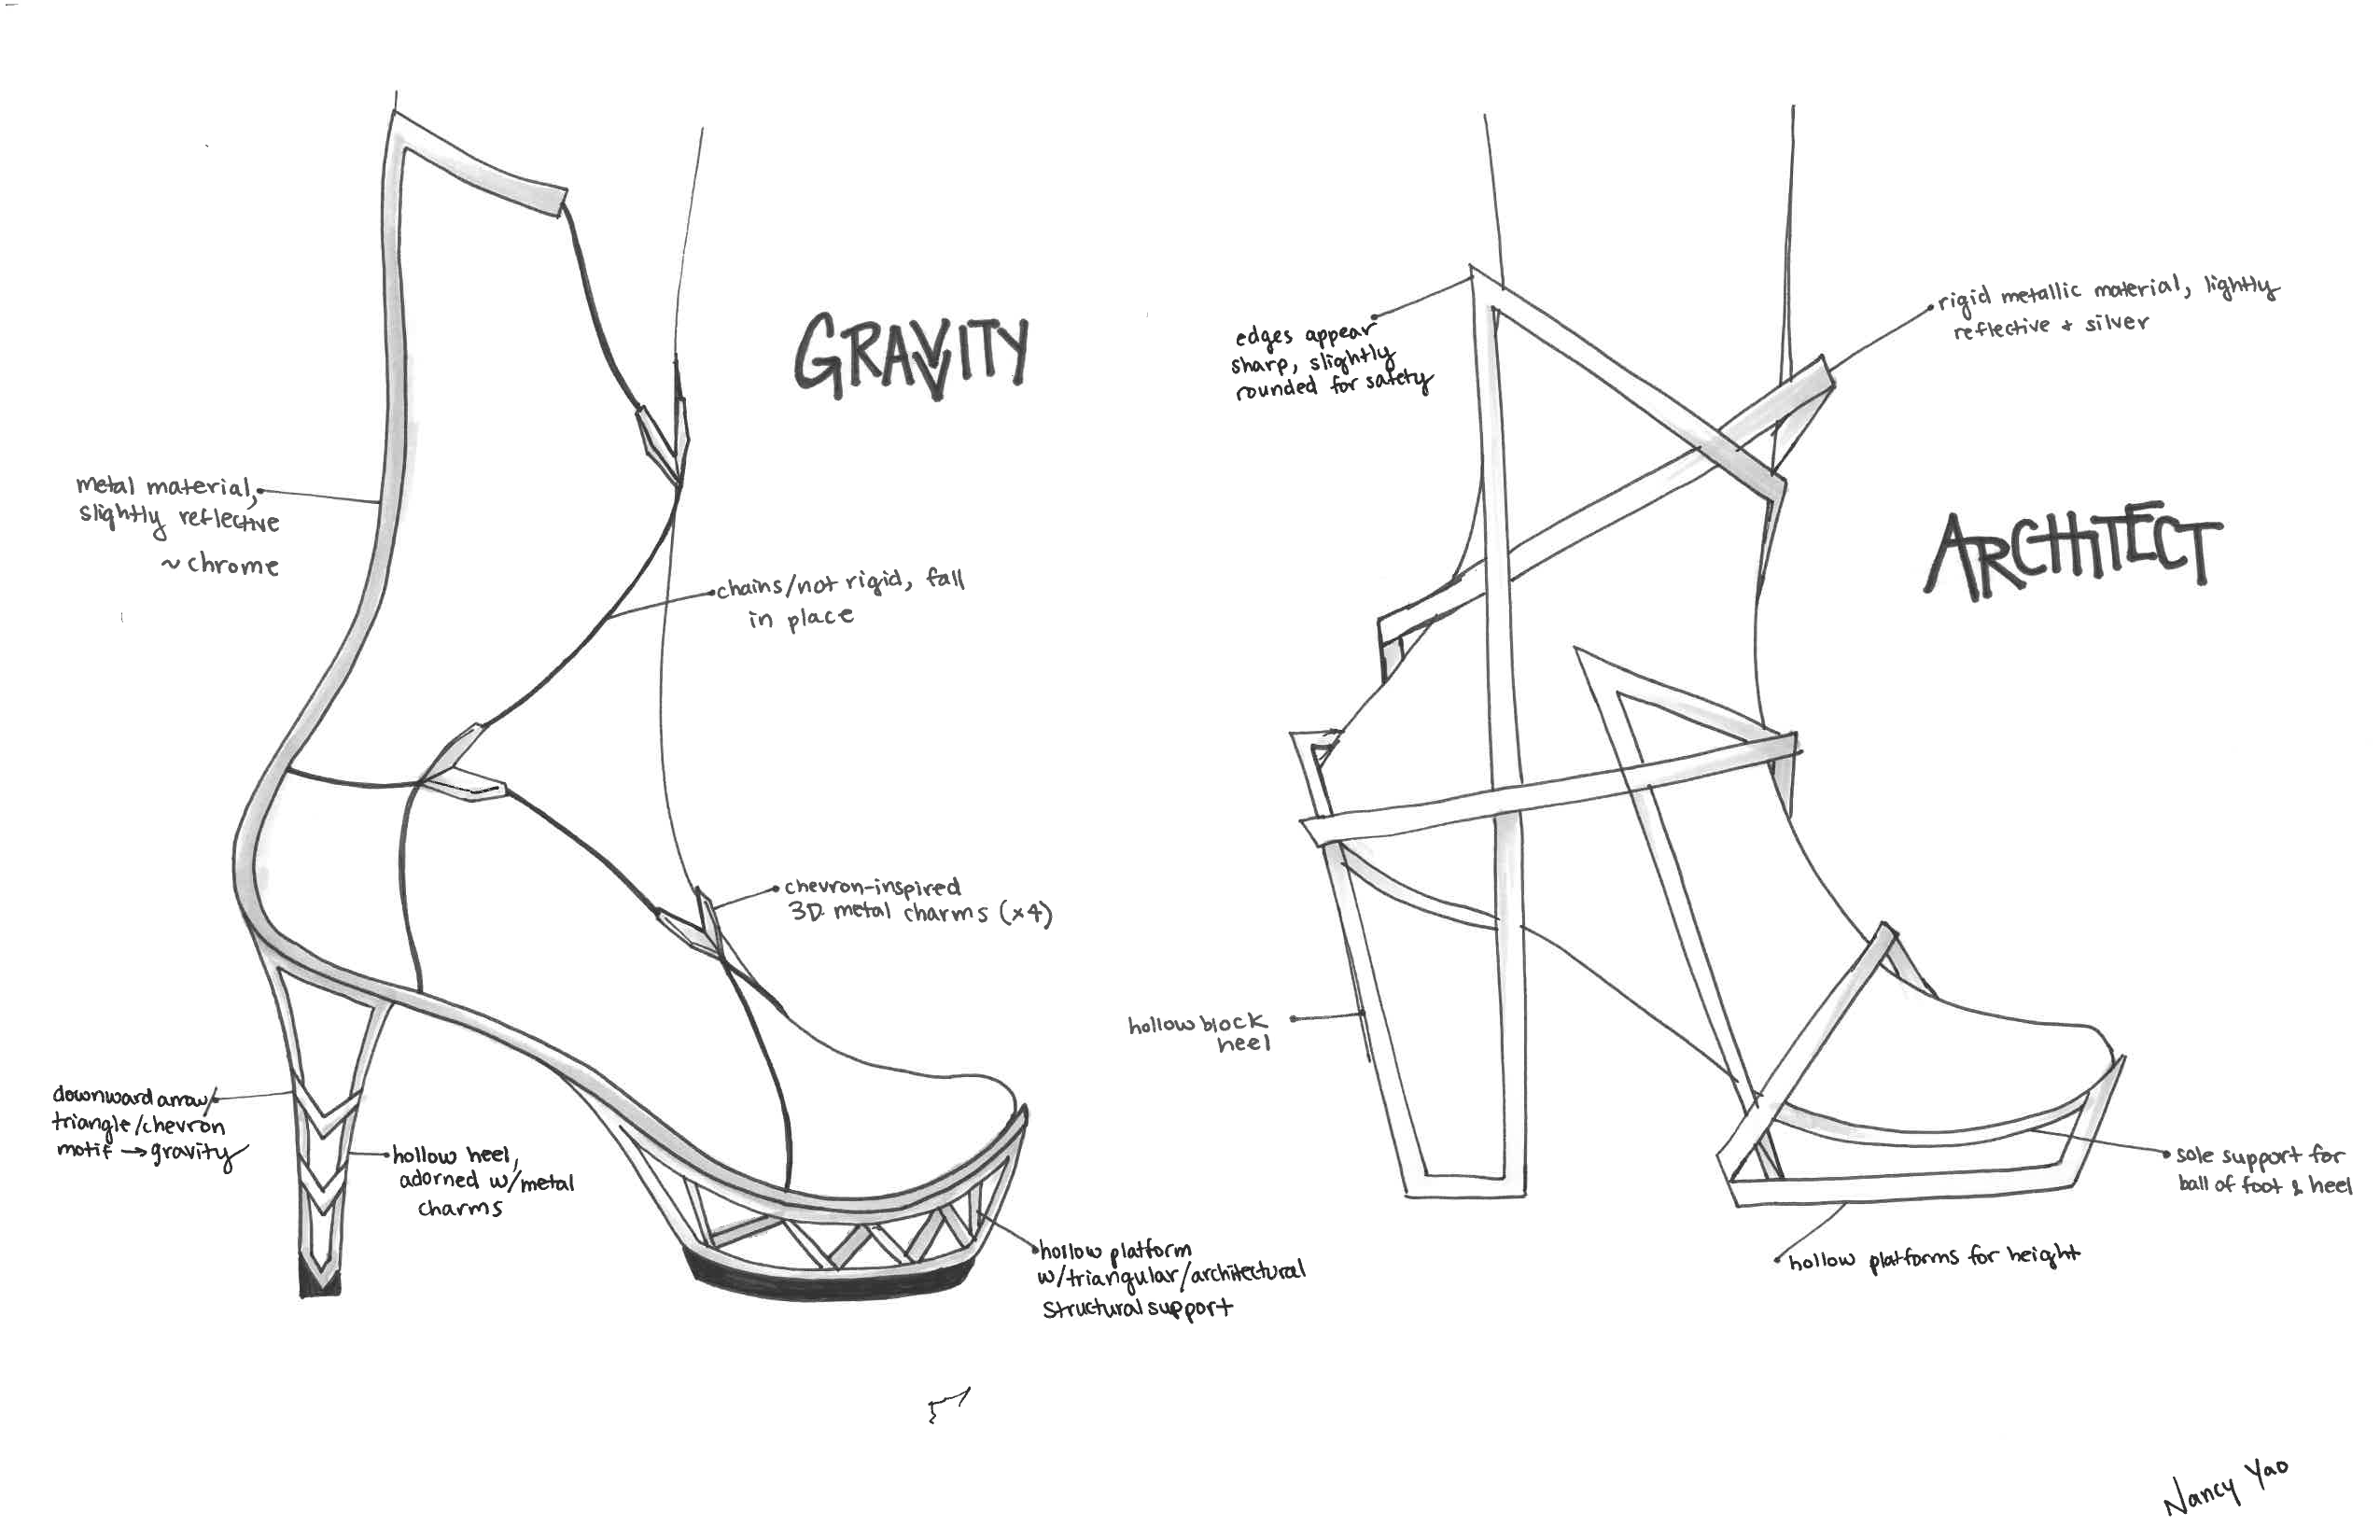 GRAVITY
metal material,
slightly reflective
~ chrome
chains/not rigid, fall
in place
chevron-inspired
3D metal charms (x4)
downward arrow/
triangle/chevron
motif → gravity
hollow heel,
adorned w/metal
charms
hollow platform
w/triangular/architectural
structural support
ARCHITECT
edges appear
sharp, slightly
rounded for safety
rigid metallic material, lightly
reflective + silver
hollow block
heel
sole support for
ball of foot & heel
hollow platforms for height
Nancy Yao